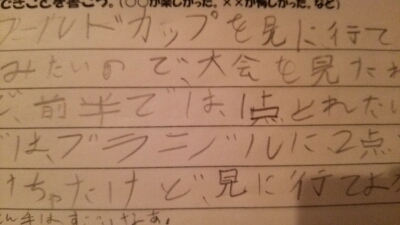 できごとを書こう。(〇〇が楽しかった。××が悔しかった。など)
ワールドカップを見に行て
みたいので、大会を見たれ
ど、前半では、1点とれたい
では、ブラニバルに、2点
けちゃたけど、見に行てよ
さんすはすごいなあ。